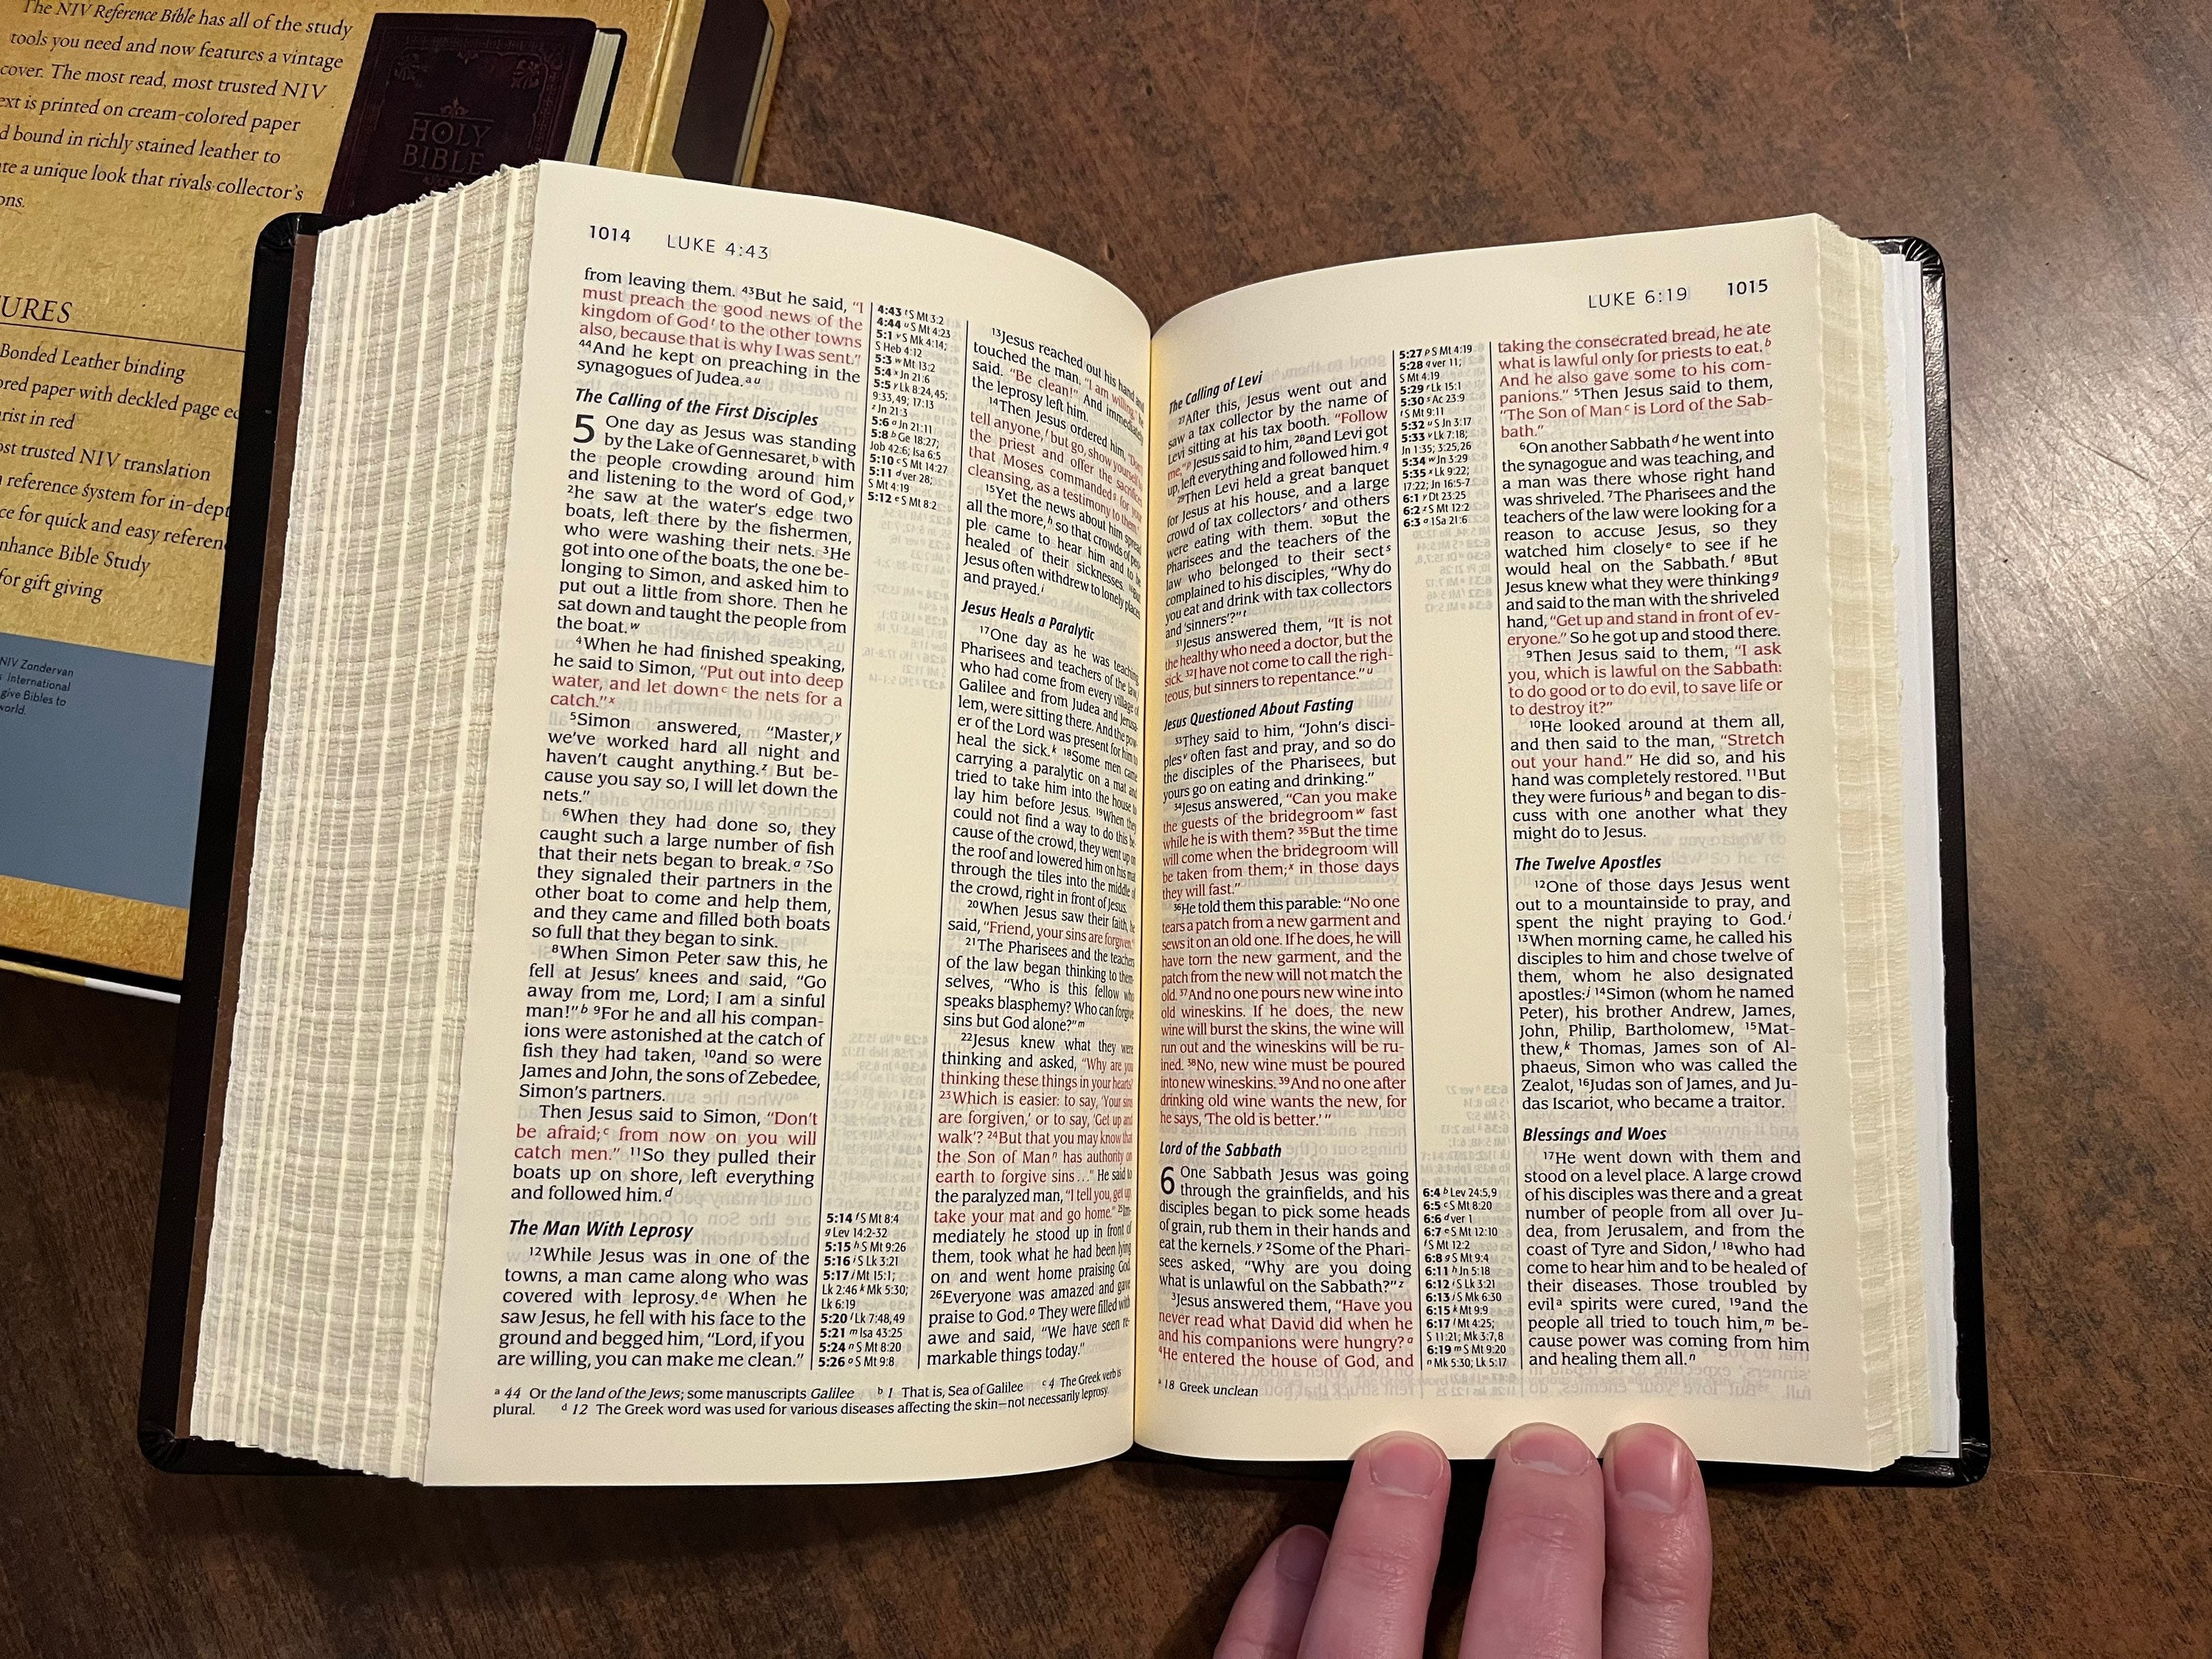 The NIV Reference Bible has all of the study
tools you need and now features a vintage
cover. The most read, most trusted NIV
ext is printed on cream-colored paper
d bound in richly stained leather to
te a unique look that rivals collector's
ons.
HOLY
BIBLE
URES
Bonded Leather binding
ored paper with deckled page ed
rist in red
ost trusted NIV translation
reference system for in-dept
ce for quick and easy referen
nhance Bible Study
for gift giving
NIV Zondervan
s International
give Bibles to
world.
1014 LUKE 4:43
from leaving them. 43But he said, “I
must preach the good news of the
kingdom of God t to the other towns
also, because that is why I was sent.”
44And he kept on preaching in the
synagogues of Judea. a u
The Calling of the First Disciples
5 One day as Jesus was standing
by the Lake of Gennesaret, b with
the people crowding around him
and listening to the word of God, v
2he saw at the water’s edge two
boats, left there by the fishermen,
who were washing their nets. 3He
got into one of the boats, the one be-
longing to Simon, and asked him to
put out a little from shore. Then he
sat down and taught the people from
the boat. w
4When he had finished speaking,
he said to Simon, “Put out into deep
water, and let down c the nets for a
catch.” x
5Simon answered, “Master, y
we’ve worked hard all night and
haven’t caught anything. z But be-
cause you say so, I will let down the
nets.”
6When they had done so, they
caught such a large number of fish
that their nets began to break. a 7So
they signaled their partners in the
other boat to come and help them,
and they came and filled both boats
so full that they began to sink.
8When Simon Peter saw this, he
fell at Jesus’ knees and said, “Go
away from me, Lord; I am a sinful
man!” b 9For he and all his compan-
ions were astonished at the catch of
fish they had taken, 10and so were
James and John, the sons of Zebedee,
Simon’s partners.
Then Jesus said to Simon, “Don’t
be afraid; c from now on you will
catch men.” 11So they pulled their
boats up on shore, left everything
and followed him. d
The Man With Leprosy
12While Jesus was in one of the
towns, a man came along who was
covered with leprosy. d e When he
saw Jesus, he fell with his face to the
ground and begged him, “Lord, if you
are willing, you can make me clean.”
4:43 t S Mt 3:2
4:44 u S Mt 4:23
5:1 v S Mk 4:14;
S Heb 4:12
5:3 w Mt 13:2
5:4 x Jn 21:6
5:5 y Lk 8:24,45;
9:33,49; 17:13
z Jn 21:3
5:6 a Jn 21:11
5:8 b Ge 18:27;
Job 42:6; Isa 6:5
5:10 c S Mt 14:27
5:11 d ver 28;
S Mt 4:19
5:12 e S Mt 8:2
5:14 f S Mt 8:4
g Lev 14:2-32
5:15 h S Mt 9:26
5:16 i S Lk 3:21
5:17 j Mt 15:1;
Lk 2:46 k Mk 5:30;
Lk 6:19
5:20 l Lk 7:48,49
5:21 m Isa 43:25
5:24 n S Mt 8:20
5:26 o S Mt 9:8
13Jesus reached out his hand and
touched the man. “I am willing,” he
said. “Be clean!” And immediately
the leprosy left him.
14Then Jesus ordered him, “Don’t
tell anyone, f but go, show yourself to
the priest and offer the sacrifices
that Moses commanded g for your
cleansing, as a testimony to them.”
15Yet the news about him spread
all the more, h so that crowds of peo-
ple came to hear him and to be
healed of their sicknesses. 16But
Jesus often withdrew to lonely places
and prayed. i
Jesus Heals a Paralytic
17One day as he was teaching,
Pharisees and teachers of the law, j
who had come from every village of
Galilee and from Judea and Jerusa-
lem, were sitting there. And the pow-
er of the Lord was present for him to
heal the sick. k 18Some men came
carrying a paralytic on a mat and
tried to take him into the house to
lay him before Jesus. 19When they
could not find a way to do this be-
cause of the crowd, they went up on
the roof and lowered him on his mat
through the tiles into the middle of
the crowd, right in front of Jesus.
20When Jesus saw their faith, he
said, “Friend, your sins are forgiven.”
21The Pharisees and the teachers
of the law began thinking to them-
selves, “Who is this fellow who
speaks blasphemy? Who can forgive
sins but God alone?” m
22Jesus knew what they were
thinking and asked, “Why are you
thinking these things in your hearts?
23Which is easier: to say, ‘Your sins
are forgiven,’ or to say, ‘Get up and
walk’? 24But that you may know that
the Son of Man n has authority on
earth to forgive sins....” He said to
the paralyzed man, “I tell you, get up,
take your mat and go home.” 25Im-
mediately he stood up in front of
them, took what he had been lying
on and went home praising God.
26Everyone was amazed and gave
praise to God. o They were filled with
awe and said, “We have seen re-
markable things today.”
a 44 Or the land of the Jews; some manuscripts Galilee b 1 That is, Sea of Galilee c 4 The Greek verb is
plural. d 12 The Greek word was used for various diseases affecting the skin—not necessarily leprosy.
LUKE 6:19 1015
The Calling of Levi
27After this, Jesus went out and
saw a tax collector by the name of
Levi sitting at his tax booth. “Follow
me,” p Jesus said to him, 28and Levi got
up, left everything and followed him. q
29Then Levi held a great banquet
for Jesus at his house, and a large
crowd of tax collectors r and others
were eating with them. 30But the
Pharisees and the teachers of the
law who belonged to their sect s
complained to his disciples, “Why do
you eat and drink with tax collectors
and ‘sinners’?” t
31Jesus answered them, “It is not
the healthy who need a doctor, but the
sick. 32I have not come to call the righ-
teous, but sinners to repentance.” u
Jesus Questioned About Fasting
33They said to him, “John’s disci-
ples v often fast and pray, and so do
the disciples of the Pharisees, but
yours go on eating and drinking.”
34Jesus answered, “Can you make
the guests of the bridegroom w fast
while he is with them? 35But the time
will come when the bridegroom will
be taken from them; x in those days
they will fast.”
36He told them this parable: “No one
tears a patch from a new garment and
sews it on an old one. If he does, he will
have torn the new garment, and the
patch from the new will not match the
old. 37And no one pours new wine into
old wineskins. If he does, the new
wine will burst the skins, the wine will
run out and the wineskins will be ru-
ined. 38No, new wine must be poured
into new wineskins. 39And no one after
drinking old wine wants the new, for
he says, ‘The old is better.’ ”
Lord of the Sabbath
6 One Sabbath Jesus was going
through the grainfields, and his
disciples began to pick some heads
of grain, rub them in their hands and
eat the kernels. y 2Some of the Phari-
sees asked, “Why are you doing
what is unlawful on the Sabbath?” z
3Jesus answered them, “Have you
never read what David did when he
and his companions were hungry? a
4He entered the house of God, and
5:27 p S Mt 4:19
5:28 q ver 11;
S Mt 4:19
5:29 r Lk 15:1
5:30 s Ac 23:9
t S Mt 9:11
5:32 u S Jn 3:17
5:33 v Lk 7:18;
Jn 1:35; 3:25,26
5:34 w Jn 3:29
5:35 x Lk 9:22;
17:22; Jn 16:5-7
6:1 y Dt 23:25
6:2 z S Mt 12:2
6:3 a 1Sa 21:6
6:4 b Lev 24:5,9
6:5 c S Mt 8:20
6:6 d ver 1
6:7 e S Mt 12:10
f S Mt 12:2
6:8 g S Mt 9:4
6:11 h Jn 5:18
6:12 i S Lk 3:21
6:13 j S Mk 6:30
6:15 k Mt 9:9
6:17 l Mt 4:25;
S 11:21; Mk 3:7,8
6:19 m S Mt 9:20
n Mk 5:30; Lk 5:17
taking the consecrated bread, he ate
what is lawful only for priests to eat. b
And he also gave some to his com-
panions.” 5Then Jesus said to them,
“The Son of Man c is Lord of the Sab-
bath.”
6On another Sabbath d he went into
the synagogue and was teaching, and
a man was there whose right hand
was shriveled. 7The Pharisees and the
teachers of the law were looking for a
reason to accuse Jesus, so they
watched him closely e to see if he
would heal on the Sabbath. f 8But
Jesus knew what they were thinking g
and said to the man with the shriveled
hand, “Get up and stand in front of ev-
eryone.” So he got up and stood there.
9Then Jesus said to them, “I ask
you, which is lawful on the Sabbath:
to do good or to do evil, to save life or
to destroy it?”
10He looked around at them all,
and then said to the man, “Stretch
out your hand.” He did so, and his
hand was completely restored. 11But
they were furious h and began to dis-
cuss with one another what they
might do to Jesus.
The Twelve Apostles
12One of those days Jesus went
out to a mountainside to pray, and
spent the night praying to God. i
13When morning came, he called his
disciples to him and chose twelve of
them, whom he also designated
apostles: j 14Simon (whom he named
Peter), his brother Andrew, James,
John, Philip, Bartholomew, 15Mat-
thew, k Thomas, James son of Al-
phaeus, Simon who was called the
Zealot, 16Judas son of James, and Ju-
das Iscariot, who became a traitor.
Blessings and Woes
17He went down with them and
stood on a level place. A large crowd
of his disciples was there and a great
number of people from all over Ju-
dea, from Jerusalem, and from the
coast of Tyre and Sidon, l 18who had
come to hear him and to be healed of
their diseases. Those troubled by
evil a spirits were cured, 19and the
people all tried to touch him, m be-
cause power was coming from him
and healing them all. n
a 18 Greek unclean